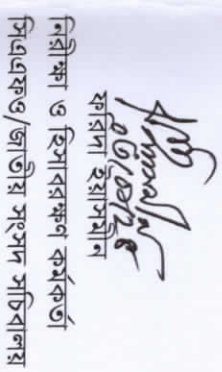 ফরিদা ইয়াসমীন
নিরীক্ষা ও হিসাবরক্ষণ কর্মকর্তা
সিএএফও/জাতীয় সংসদ সচিবালয়